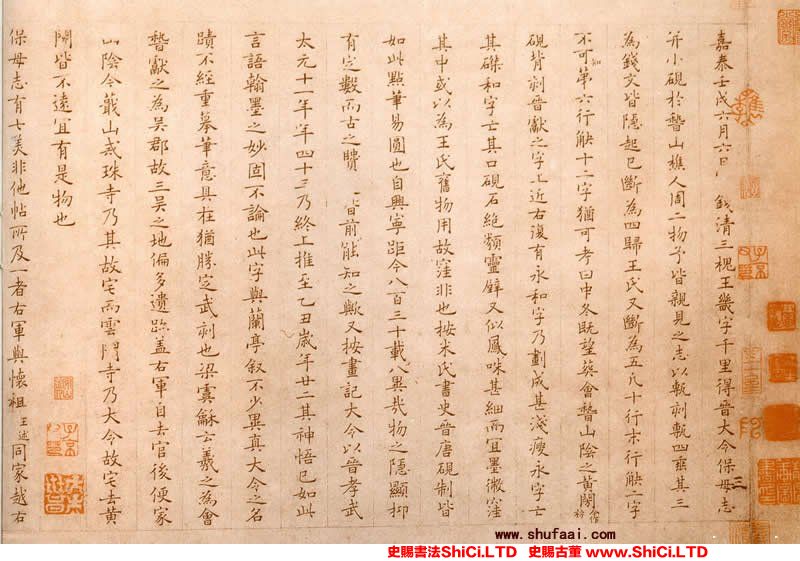 嘉泰壬戌六月六日錢清三槐王畿字千里得晉大令保母志
并小硯於嵇山樵人周二物予皆親見之志以甎刻甎四垂其三
為錢文皆隱起已斷為四歸王氏又斷為五凡十行末行缺二字
不可知第六行缺十二字猶可考曰中冬既望葬會嵇山陰之黃閍
硯背刻晉獻之字上近右復有永和字乃劃成甚淺瘦永字亡
其磔和字亡其口硯石絕類靈壁又似鳳咮甚細而宜墨微窪
其中或以為王氏舊物用故窪非也按米氏書史晉唐硯制皆
如此點筆易圓也自興寧距今八百三十載八異哉物之隱顯抑
有定數而古之賸皆前能知之歟又按畫記大令以晉孝武
太元十一年年四十三乃終上推至乙丑歲年廿二其神悟已如此
言語翰墨之妙固不論也此字與蘭亭敘不少異真大令之名
蹟不經重摹筆意具在猶勝定武刻也梁虞龢云羲之為會
嵇獻之為吳郡故三吳之地偏多遺跡蓋右軍自去官後便家
山陰今蕺山戒珠寺乃其故宅而雲門寺乃大令故宅去黃
閍皆不遠宜有是物也
保母志有七美非他帖所及一者右軍與懷祖王述同家越右
www.shufaai.com
史賜書法ShiCi.LTD 史賜古董 www.ShiCi.LTD